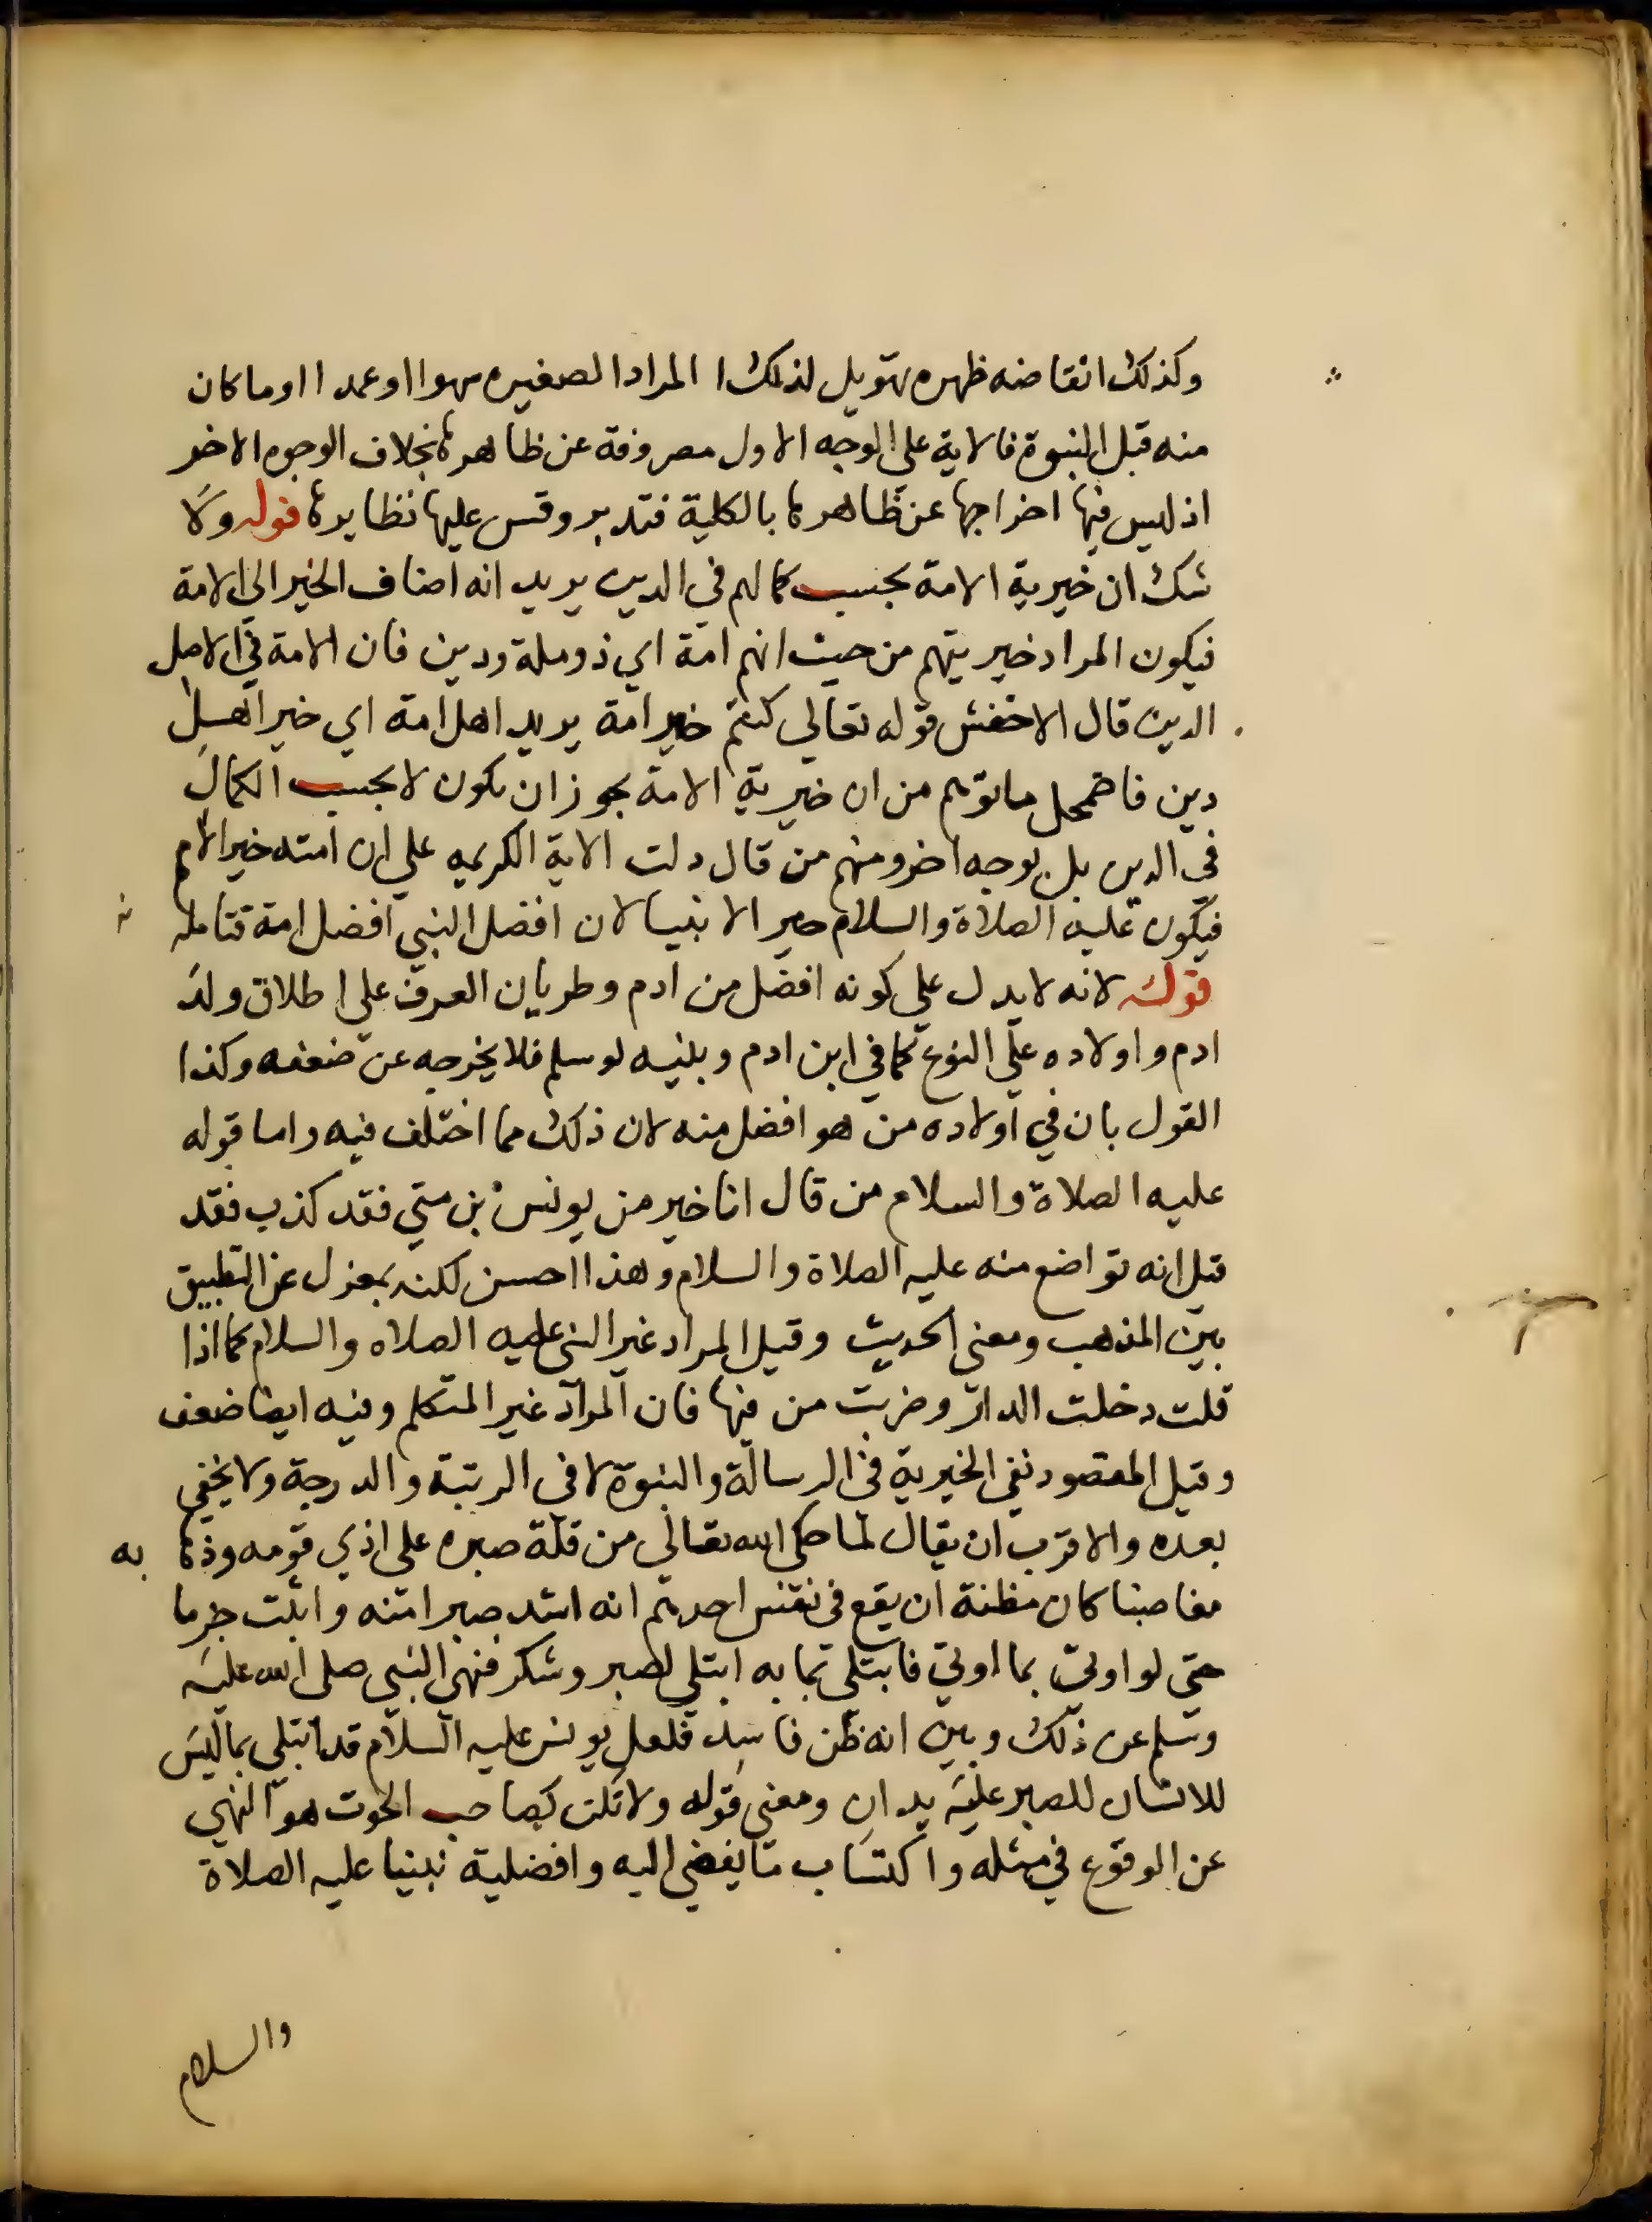 وكذلك انقاضه ظهره تهويل لذلك المراد الصغيره سهوا اوعمدا اوما كان
منه قبل النبوة فالاية على الوجه الاول مصروفة عن ظاهرها بخلاف الوجوه الاخر
اذ ليس فيها اخراجها عن ظاهرها بالكلية فتدبر وقس عليها نظايرها قوله ولا
شك ان خيرية الامة بحسب كمالهم في الدين يريد انه اضاف الخير الى الامة
فيكون المراد خيريتهم من حيث انهم امة اي ذو ملة ودين فان الامة في الاصل
الدين قال الاخفش قوله تعالي كنتم خير امة يريد اهل امة اي خير اهل
دين فاضمحل ما توهم من ان خيرية الامة يجوز ان يكون لا بحسب الكمال
في الدين بل بوجه اخر ومنهم من قال دلت الاية الكريمه علي ان امته خير الامم
فيكون عليه الصلاة والسلام خير الانبيا لان افضل النبي افضل امة تتامله
قوله لانه لا يدل علي كونه افضل من ادم وطريان العرف علي اطلاق ولد
ادم واولاده علي النوع كما في ابن ادم وبنيه لو سلم فلا يخرجه عن ضعفه وكذا
القول بان في اولاده من هو افضل منه لان ذلك مما اختلف فيه واما قوله
عليه الصلاة والسلام من قال انا خير من يونس بن متي فقد كذب فقد
قيل انه تواضع منه عليه الصلاة والسلام وهذا احسن لكنه بمعزل عن التطبيق
بين المذهب ومعني الحديث وقيل المراد غير النبي عليه الصلاه والسلام كما اذا
قلت دخلت الدار وضربت من فيها فان المراد غير المتكلم وفيه ايضا ضعف
وقيل المقصود نفي الخيرية في الرسالة والنبوة لا في الرتبة والدرجة ولا يخفي
بعده والاقرب ان يقال لما حكي الله تعالي من قلة صبره على اذي قومه وذها به
مغاضبا كان مظنة ان يقع في نفس احدهم انه اشد صبرا منه واثبت جرما
حتي لو اوتي بما اوتي فابتلي بما به ابتلي لصبر وشكر فنهي النبي صلى الله عليه
وسلم عن ذلك وبين انه ظن فاسد فلعل يونس عليه السلام قد ابتلي بما ليس
للانسان للصبر عليه يدان ومعني قوله ولا تكن كصاحب الحوت هو النهي
عن الوقوع في مثله واكتساب ما يفضي اليه وافضلية نبينا عليه الصلاة
والسلام